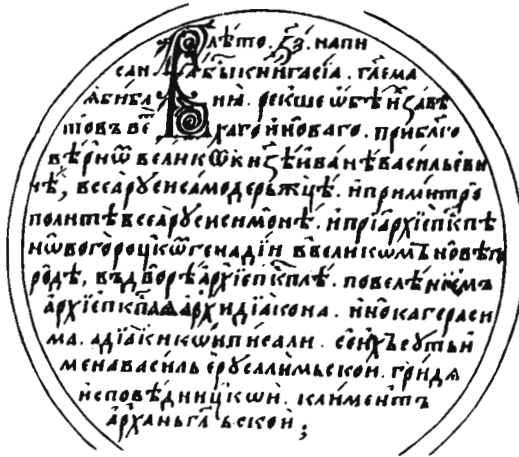 В лѣто . ҂ѕ҃з . напи
сана бы̑ книга сіа . гл҃ема
ѧ библиа . рекше ѡбѣи҆х̾ завѣ
товъ ве҇хаго и҆новаго . при бл҃го
вѣрнѡ҇ великѡ҇ кн҃зѣ и҆ванѣ васильеви
чѣ, всеѧ рꙋси самодержцѣ . и҆ при митро
политѣ всеѧ рꙋси симонѣ . и҆ при а҆рхїепк҇пѣ
нѡвогороцкѡ҇ генадїи . в великѡмъ новѣго
родѣ, въ дворѣ а҆рхїепк҇плѣ . повелѣнїемъ
а҆рхїепк҇пѧ а҆рхидїакона . и҆нока гераси
ма . а дїаки кѡи писали . се и҆хъ сꙋть и
мена василь є҆рꙋсалимьскои . гридѧ
и҆сповѣдницкѡи . климентъ
а҆рханьгл҃ьскои ;